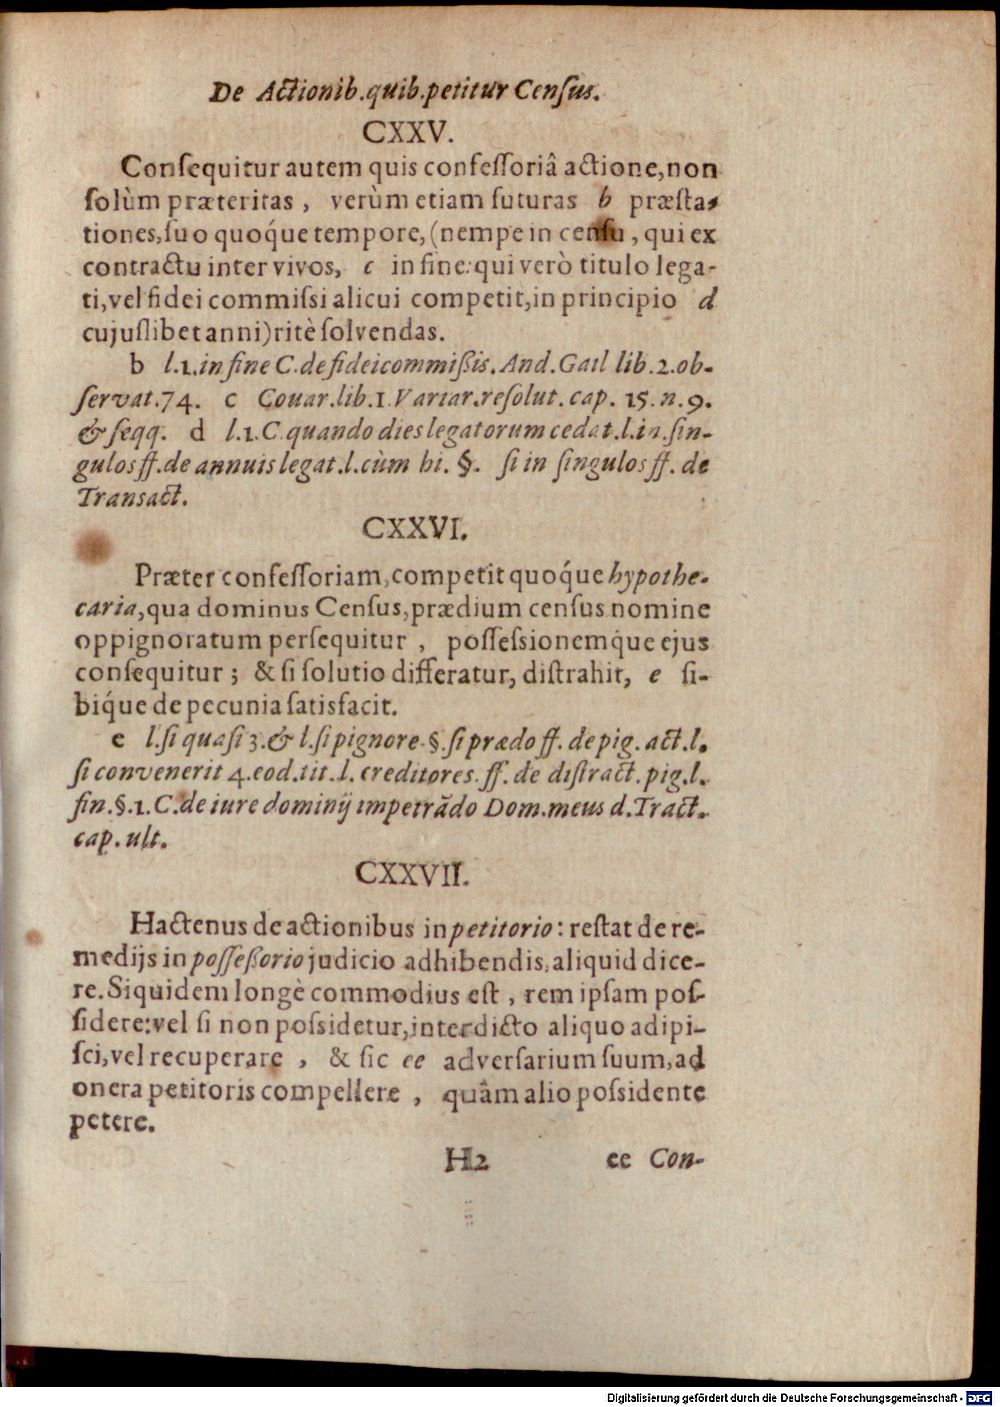 De Actionib.quib.petitur Cenſus.
CXXV.
Conſequitur autem quis confeſſoriâ actione,non
ſolùm præteritas, verùm etiam futuras b præſta-
tiones,ſuo quoq́ue tempore,(nempe in cenſu, qui ex
contractu inter vivos, c in fine: qui verò titulo lega-
ti,vel fidei commiſsi alicui competit,in principio d
cujuſlibet anni)ritè ſolvendas.
b l.1.in fine C.de fideicommißis. And. Gail lib.2.ob-
ſervat.74. c Couar.lib.1.Variar.reſolut. cap. 15. n. 9.
& ſeqq. d l.1.C.quando dies legatorum cedat.l.in ſin-
gulos ff.de annuis legat.l.cùm hi. §. ſi in ſingulos ff. de
Transact.
CXXVI.
Præter confeſſoriam,competit quoq́ue hypothe-
caria,qua dominus Cenſus,prædium cenſus nomine
oppignoratum perſequitur, poſſeſsionemq́ue ejus
conſequitur; & ſi ſolutio differatur, diſtrahit, e ſi-
biq́ue de pecunia ſatisfacit.
e l.ſi quaſi 3.& l.ſi pignore.§.ſi prædo ff. de pig. act.l.
ſi convenerit 4.eod.tit.l. creditores.ff. de diſtract. pig.l.
fin.§.1.C.de iure dominij impetrãdo Dom.meus d.Tract.
cap. ult.
CXXVII.
Hactenus de actionibus in petitorio: reſtat de re-
medijs in poſſeßorio judicio adhibendis,aliquid dice-
re. Siquidem longè commodius eſt, rem ipſam poſ-
ſidere:vel ſi non poſsidetur,interdicto aliquo adipi-
ſci,vel recuperare, & ſic ee adverſarium ſuum,ad
onera petitoris compellere, quâm alio poſsidente
petere.
H2 ee Con-
Digitalisierung gefördert durch die Deutsche Forschungsgemeinschaft - DFG